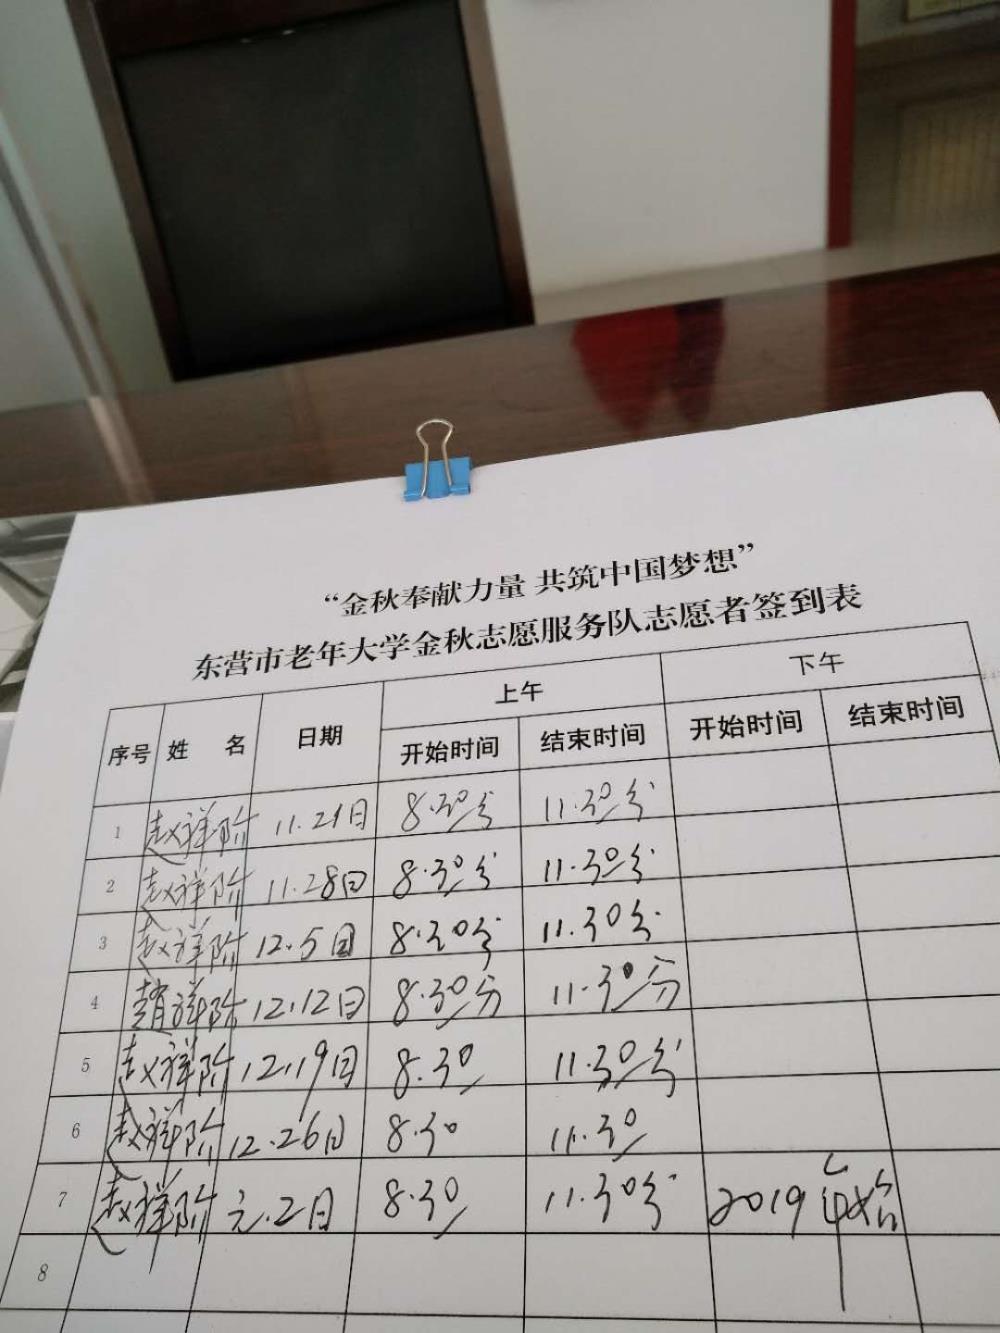 “金秋奉献力量 共筑中国梦想”
东营市老年大学金秋志愿服务队志愿者签到表
序号 姓 名 日期 上午 下午
开始时间 结束时间 开始时间 结束时间
1 赵祥阶 11.21日 8.30分 11.30分
2 赵祥阶 11.28日 8.30分 11.30分
3 赵祥阶 12.5日 8.30分 11.30分
4 趙祥阶 12.12日 8.30分 11.30分
5 赵祥阶 12.19日 8.30 11.30分
6 赵祥阶 12.26日 8.30 11.30
7 赵祥阶 元.2日 8.30 11.30分 2019年始
8